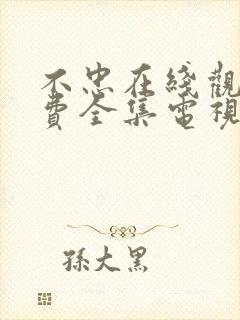 不忠在綫觀
費全集電視
孫大黑